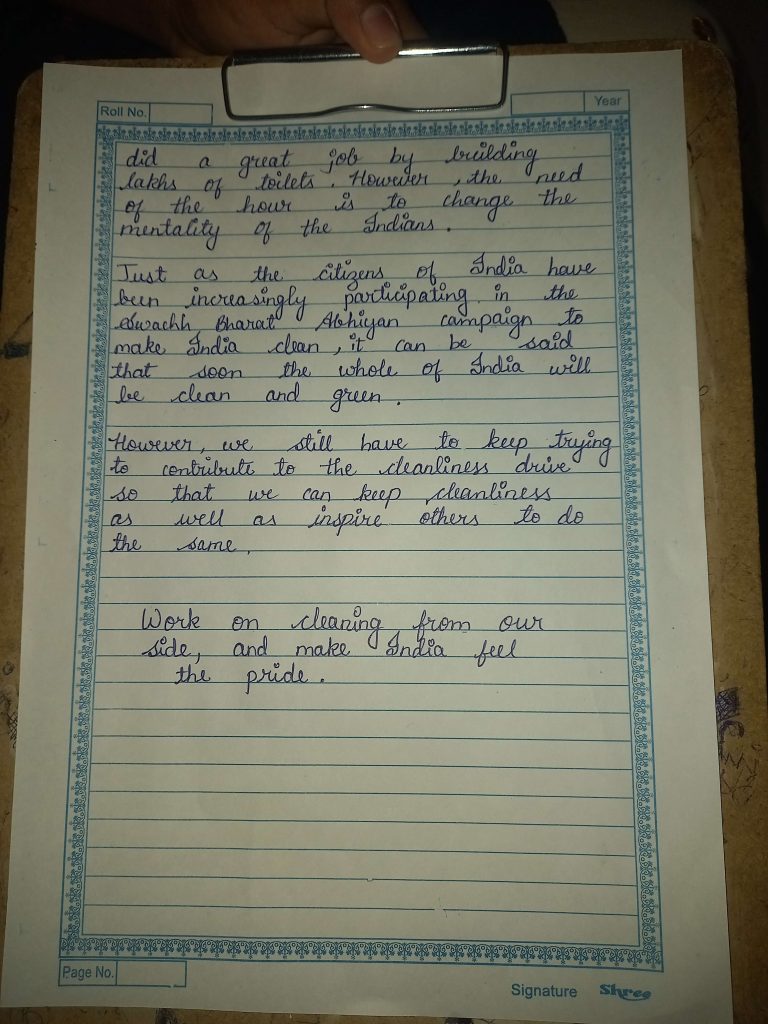 Roll No.
Year
did a great job by building
lakhs of toilets. However, the need
of the hour is to change the
mentality of the Indians.
Just as the citizens of India have
been increasingly participating in the
Swachh Bharat Abhiyan campaign to
make India clean, it can be said
that soon the whole of India will
be clean and green.
However, we still have to keep trying
to contribute to the cleanliness drive
so that we can keep cleanliness
as well as inspire others to do
the same.
Work on cleaning from our
side, and make India feel
the pride.
Page No.
Signature Shree